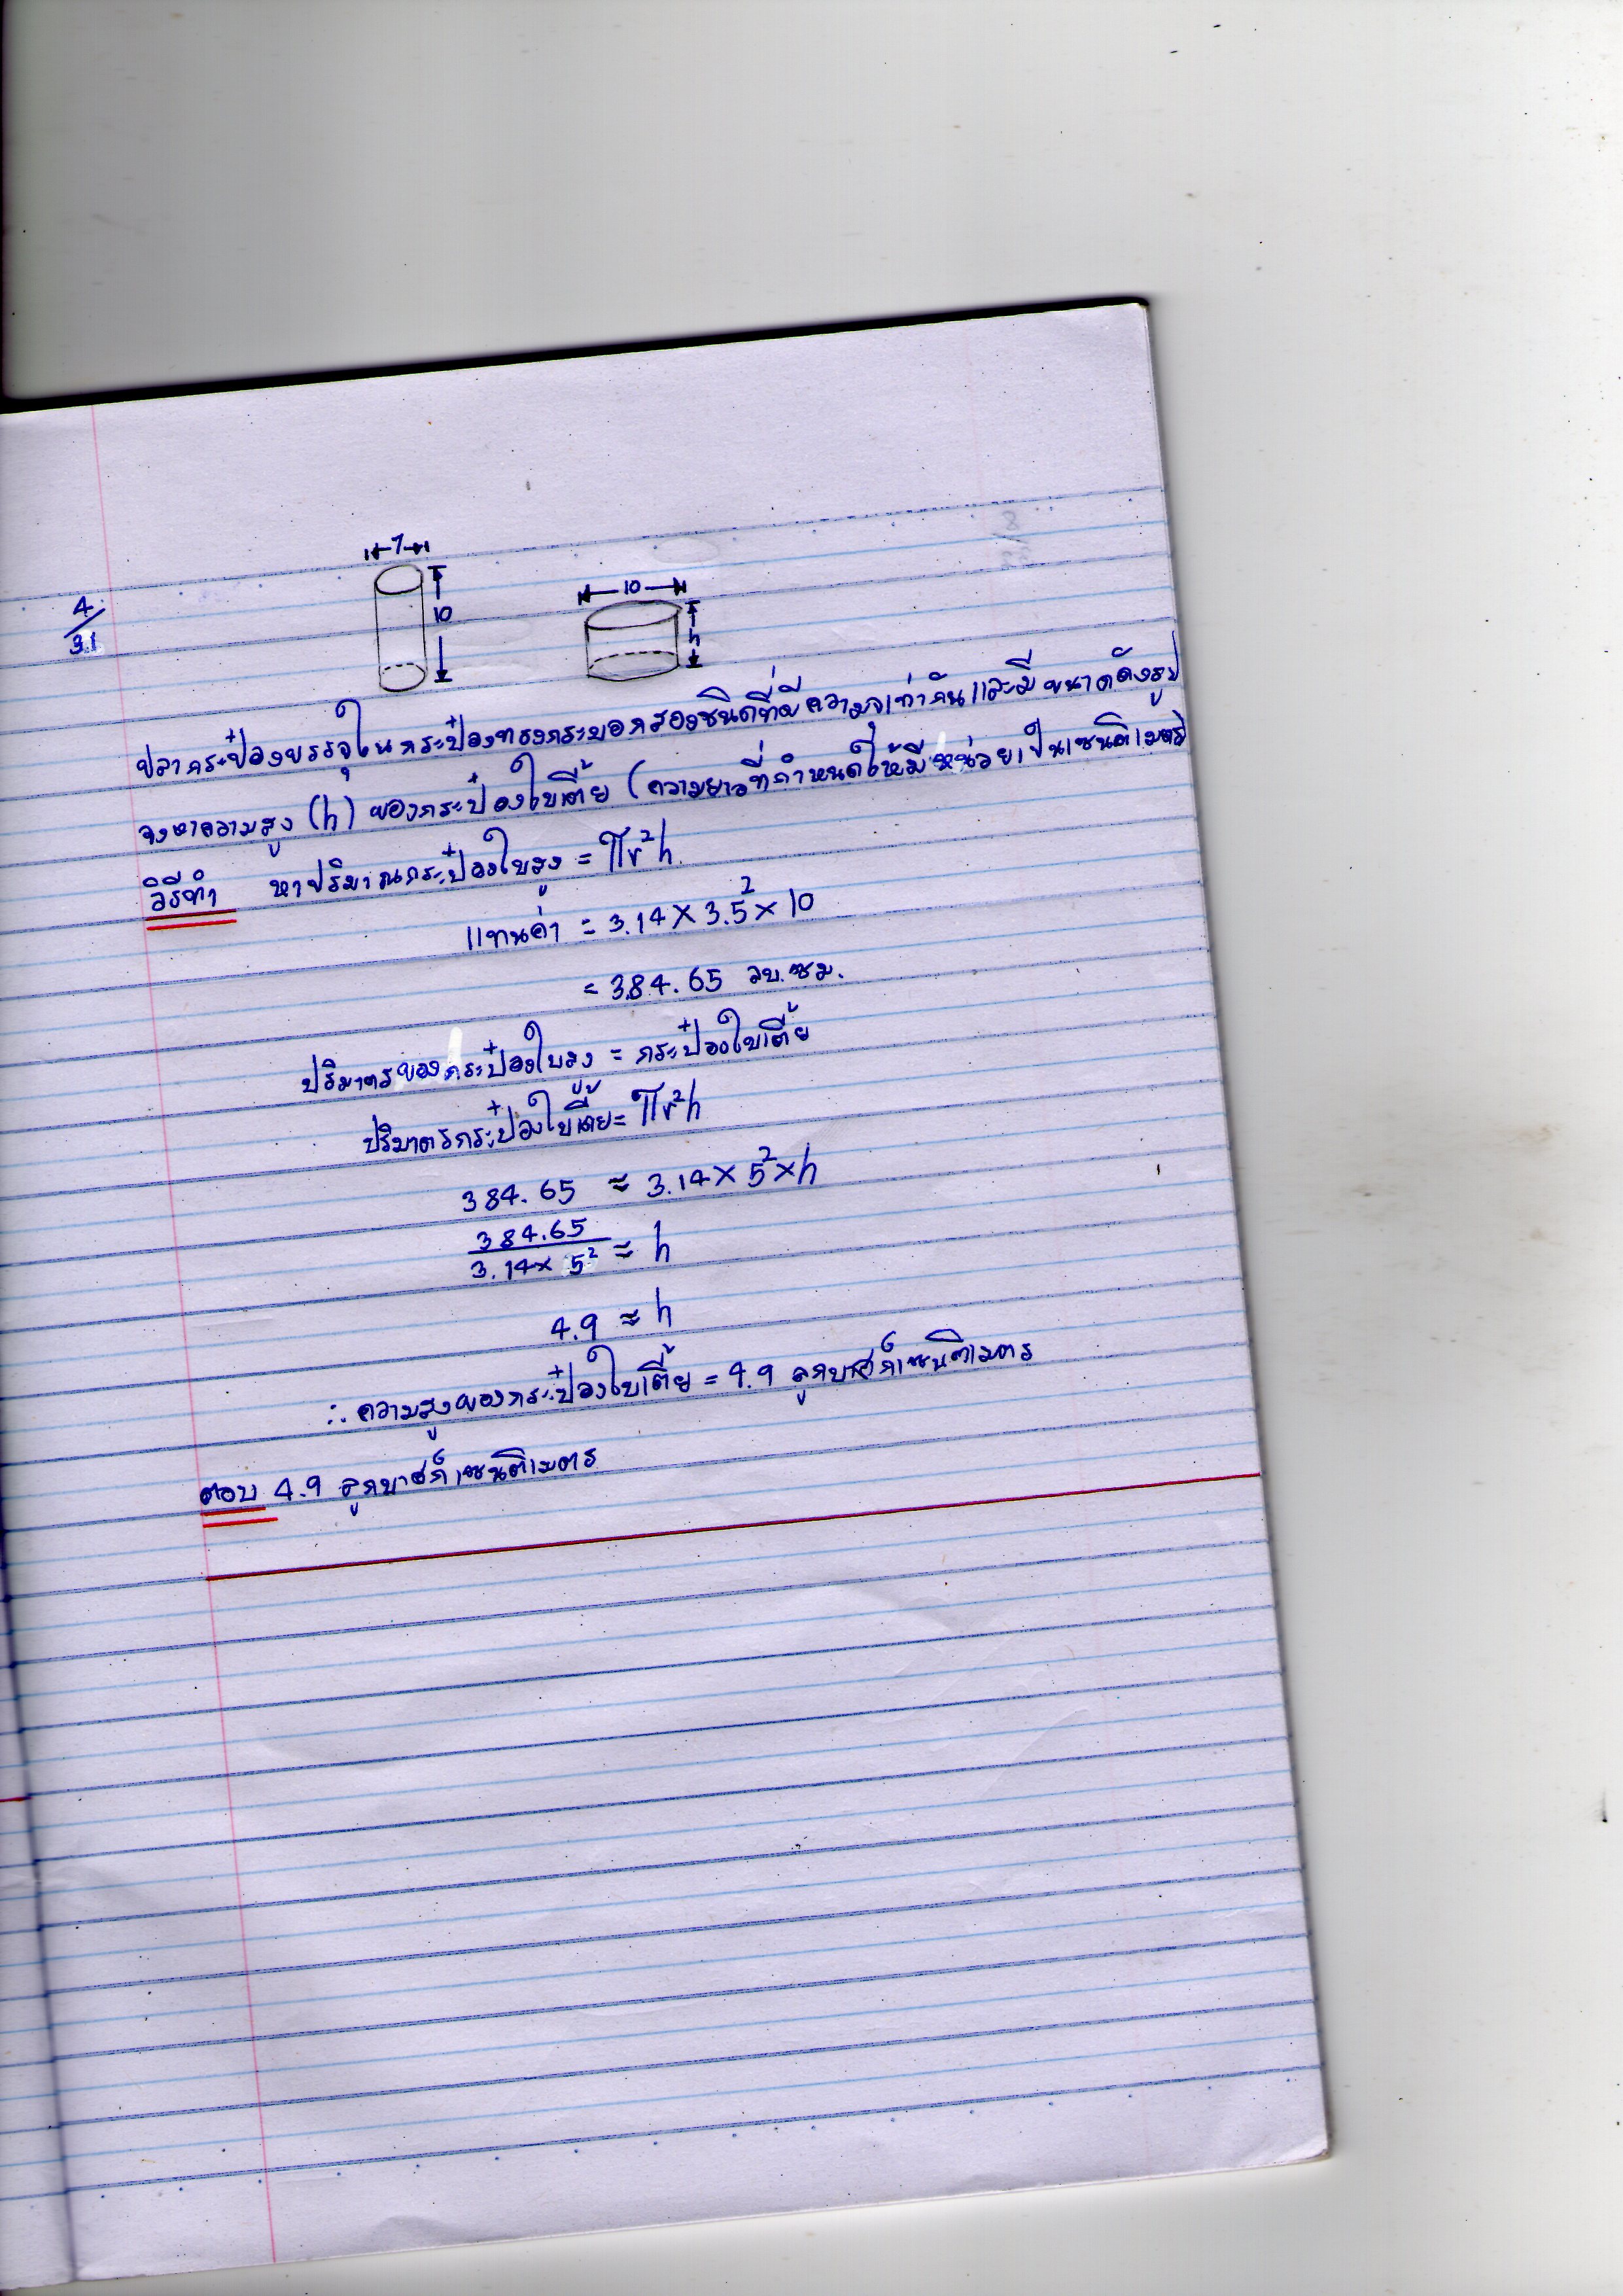 7
10
10
h
4/31
ปลากระป๋องบรรจุในกระป๋องทรงกระบอกสองชนิดที่มีความจุเท่ากันและมีขนาดดังรูป
จงหาความสูง (h) ของกระป๋องใบเตี้ย (ความยาวที่กำหนดให้มีหน่วยเป็นเซนติเมตร)
วิธีทำ หาปริมาณกระป๋องใบสูง = πr²h
แทนค่า = 3.14 × 3.5² × 10
= 384.65 ลบ.ซม.
ปริมาตรของกระป๋องใบสูง = กระป๋องใบเตี้ย
ปริมาตรกระป๋องใบเตี้ย = πr²h
384.65 ≈ 3.14 × 5² × h
384.65 / 3.14 × 5² ≈ h
4.9 ≈ h
∴ ความสูงของกระป๋องใบเตี้ย = 4.9 ลูกบาศก์เซนติเมตร
ตอบ 4.9 ลูกบาศก์เซนติเมตร